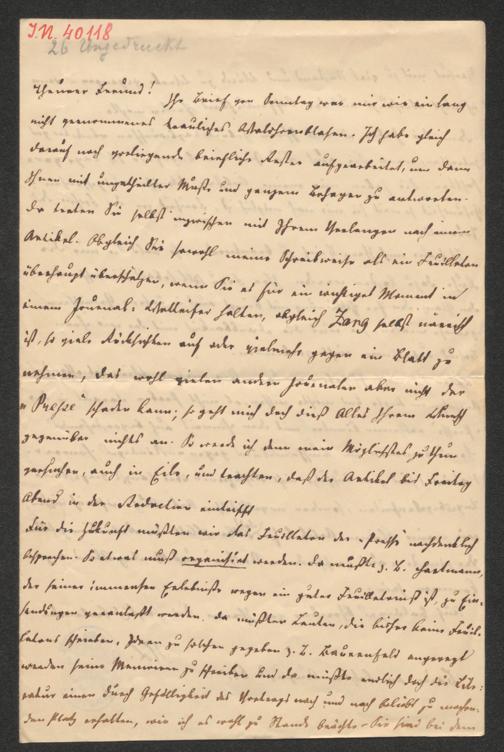 I.N. 40118
26 Ungedruckt
Theurer Freund!
Ihr Brief von Sonntag war mir wie ein lang
nicht vernommenes trauliches Waldhornblasen. Ich habe gleich
darauf noch vorliegende briefliche Reste aufgearbeitet, um dann
Ihnen mit ungetheilter Muße und ganzem Behagen zu antworten.
Da treten Sie selbst inzwischen mit Ihrem Verlangen nach einem
Artikel. Obgleich Sie sowohl meine Schreibweise als ein Feuilleton
überhaupt überschätzen, wenn Sie es für ein wichtiges Moment in
einem Journal: Wetteifer halten, obgleich Zang selbst närrisch
ist, so viele Rücksichten auf oder vielmehr gegen ein Blatt zu
nehmen, das wohl vielen andern Journalen aber nicht der
"Presse" schaden kann; so geht mich doch dieß Alles Ihrem Wunsch
gegenüber nichts an. So werde ich denn mein Möglichstes zu thun
versuchen, auch in Eile, und trachten, daß der Artikel bis Freitag
Abend in der Redaction eintrifft
Für die Zukunft müßten wir das Feuilleton der "Presse" nachdenklich
besprechen. So etwas muß organisirt werden. Da müßte z. B. Hartmann,
der seiner immensen Erlebnisse wegen ein guter Feuilletonist ist, zu Ein-
sendungen veranlaßt werden. Da müßten Leuten, die bisher keine Feuil-
letons schrieben, Ideen zu solchen gegeben z. B. Bauernfeld angeregt
werden seine Memoiren zu schreiben und da müßte endlich doch die Lite-
ratur einen durch Gefälligkeit des Vortrags nach und nach beliebt zu machen-
den Platz erhalten, wie ich es wohl zu Stande brächte. Sie sind bei dem